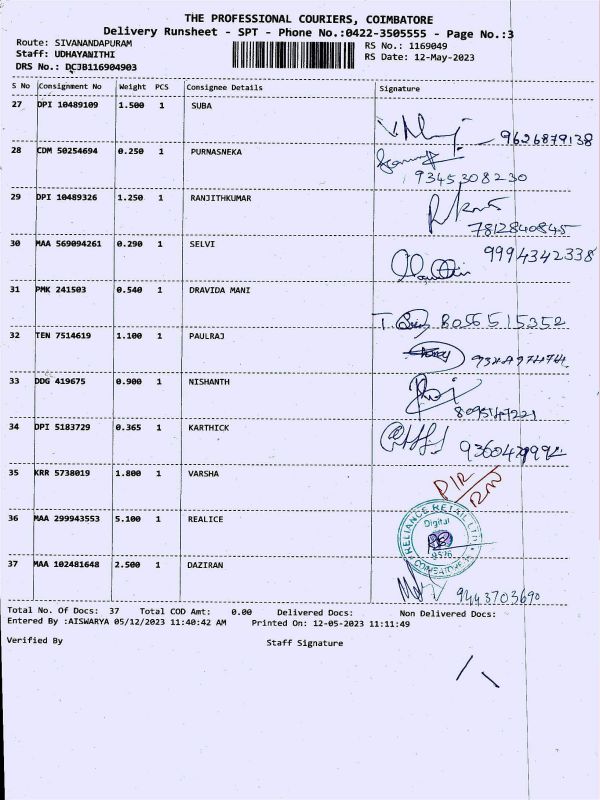 THE PROFESSIONAL COURIERS, COIMBATORE
Delivery Runsheet - SPT - Phone No.:0422-3505555 - Page No.:3
Route: SIVANANDAPURAM
Staff: UDHAYANITHI
DRS No.: DCJB116904903
RS No.: 1169049
RS Date: 12-May-2023
S No Consignment No Weight PCS Consignee Details Signature
27 DPI 10489109 1.500 1 SUBA
9626879138
28 CDM 50254694 0.250 1 PURNASNEKA
9345308230
29 DPI 10489326 1.250 1 RANJITHKUMAR
7812840845
30 MAA 569094261 0.290 1 SELVI 9994342338
31 PMK 241503 0.540 1 DRAVIDA MANI
8056515352
32 TEN 7514619 1.100 1 PAULRAJ
33 DDG 419675 0.900 1 NISHANTH
34 DPI 5183729 0.365 1 KARTHICK
35 KRR 5738019 1.800 1 VARSHA
36 MAA 299943553 5.100 1 REALICE
RELIANCE RETAIL LTD
Digital
COIMBATORE
37 MAA 102481648 2.500 1 DAZIRAN
9443703690
Total No. Of Docs: 37 Total COD Amt: 0.00 Delivered Docs: Non Delivered Docs:
Entered By :AISWARYA 05/12/2023 11:40:42 AM Printed On: 12-05-2023 11:11:49
Verified By Staff Signature